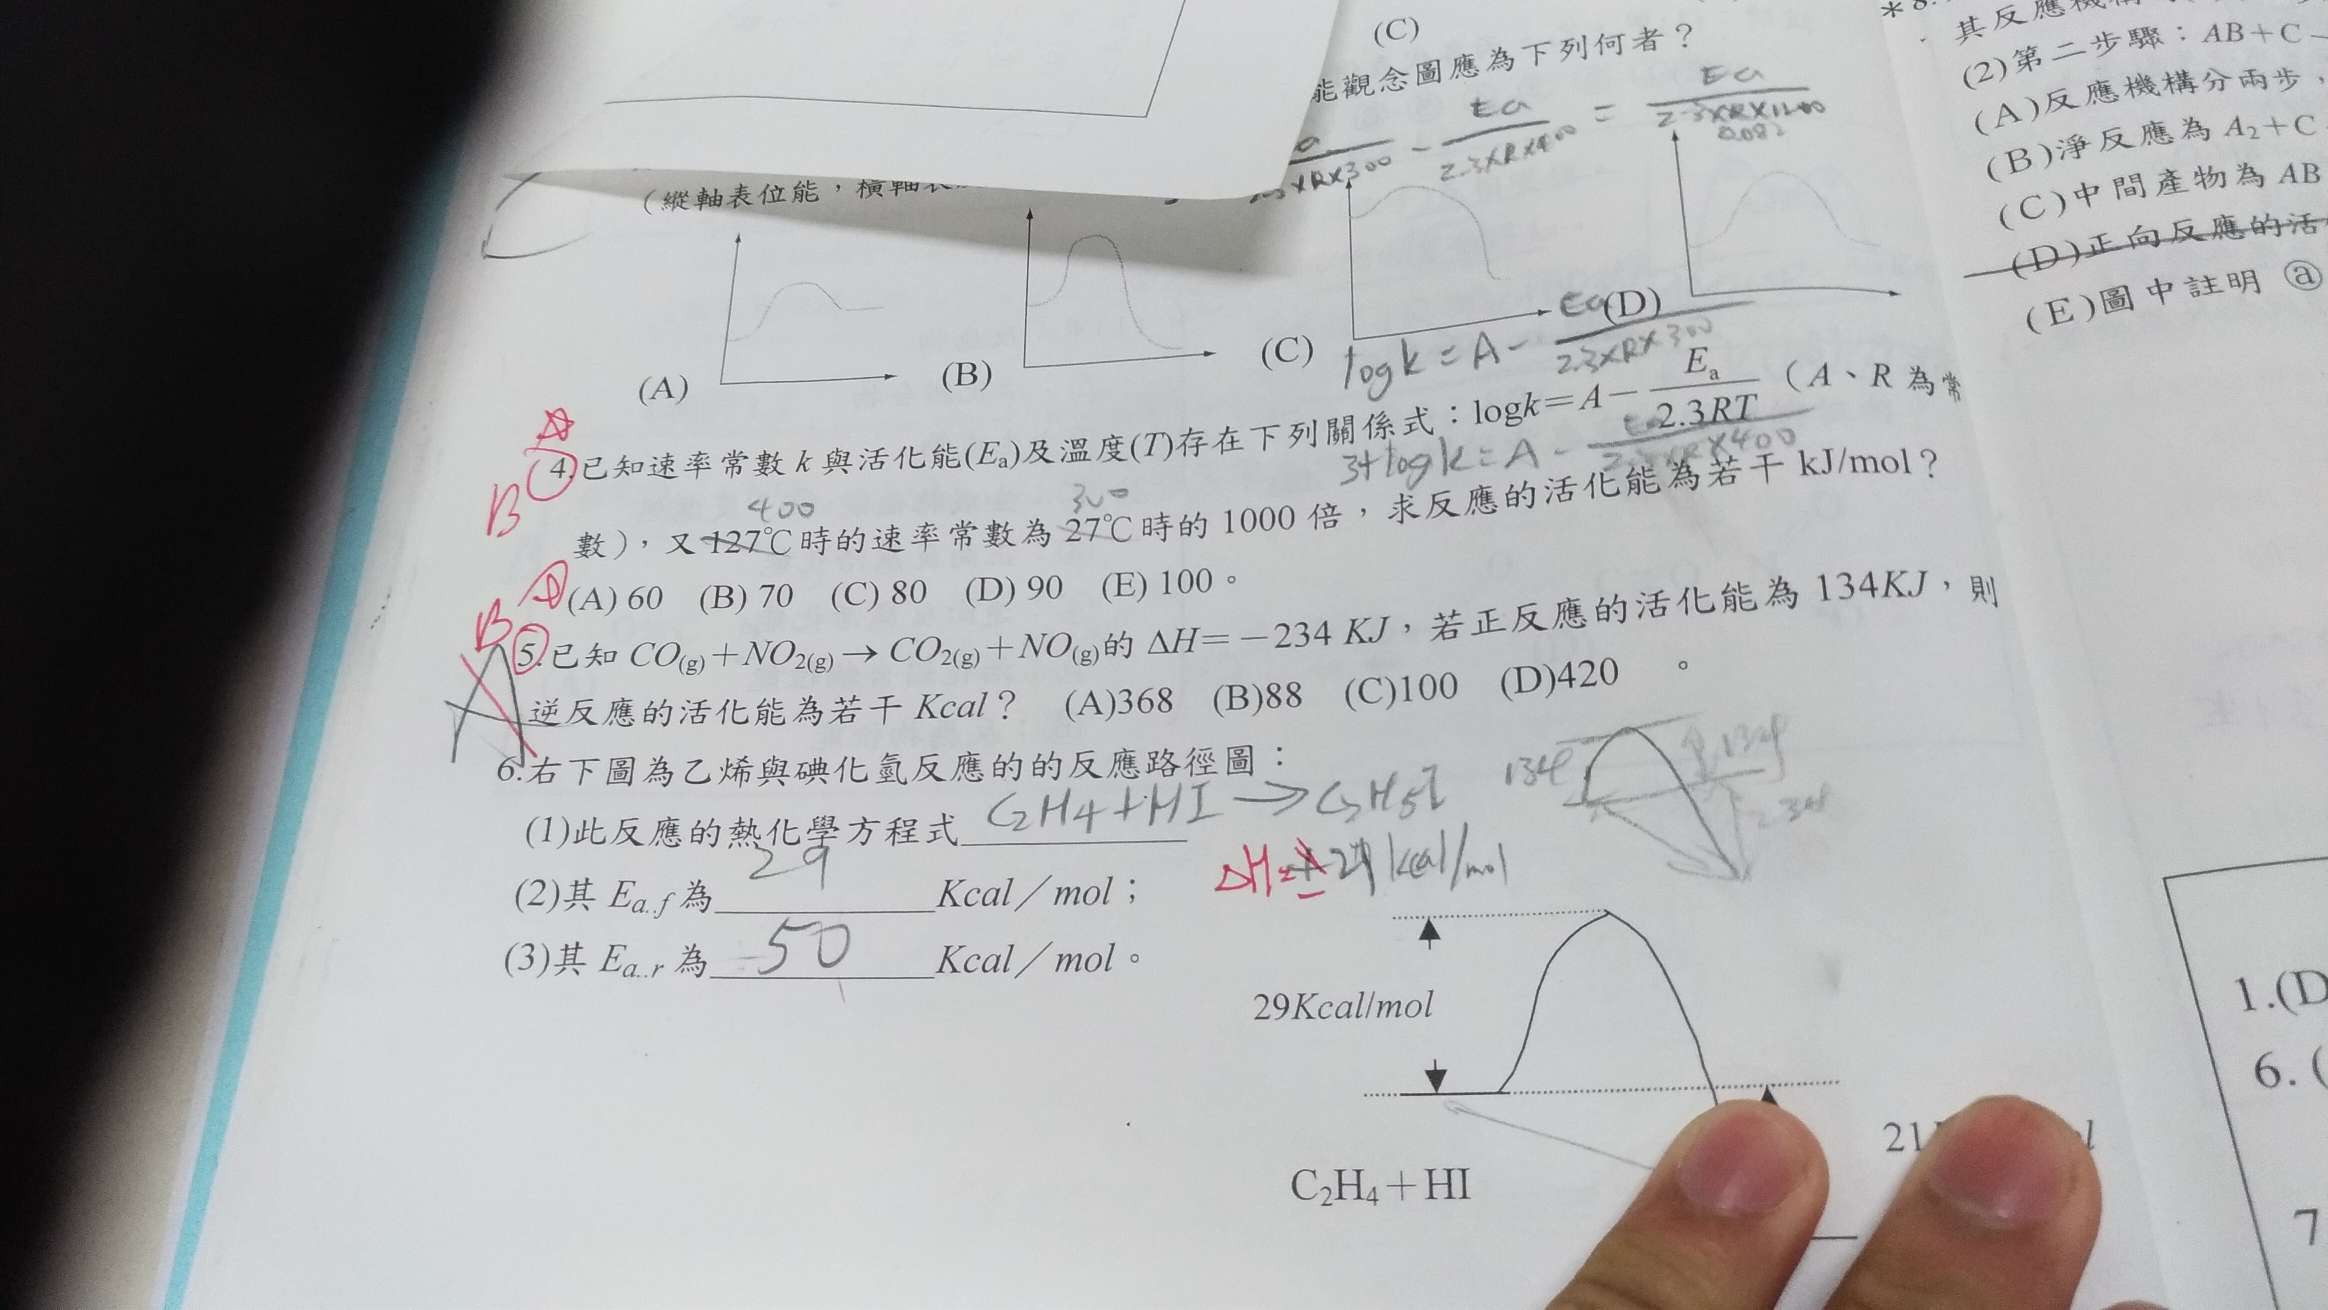 (C)
能觀念圖應為下列何者？
Ea
Ea = 2.3×R×1200
×R×300 - 2.3×R×400 0.082
(縱軸表位能，橫軸
(A) (B) (C) (D)
logk = A - Ea
2.3×R×300
4.已知速率常數 k 與活化能(Ea)及溫度(T)存在下列關係式：logk＝A－Ea/2.3RT（A、R 為常
3+logk = A - 2.3×R×400
B
400 300
數），又127℃時的速率常數為 27℃時的 1000 倍，求反應的活化能為若干 kJ/mol？
(A) 60 (B) 70 (C) 80 (D) 90 (E) 100。
B
5.已知 CO(g)＋NO2(g)→ CO2(g)＋NO(g)的 ΔH＝－234 KJ，若正反應的活化能為 134KJ，則
A
逆反應的活化能為若干 Kcal？ (A)368 (B)88 (C)100 (D)420 。
6.右下圖為乙烯與碘化氫反應的的反應路徑圖：
134 134
234
(1)此反應的熱化學方程式 C2H4+HI → C2H5I
ΔH= 21 kcal/mol
(2)其 Ea.f 為 29 Kcal／mol；
(3)其 Ea..r 為 50 Kcal／mol。
29Kcal/mol
21
C2H4＋HI
＊8.
其反應機構
(2)第二步驟：AB＋C
(A)反應機構分兩步，
(B)淨反應為 A2＋C
(C)中間產物為 AB
(D)正向反應的活
(E)圖中註明 ⓐ
1.(D
6.(
7